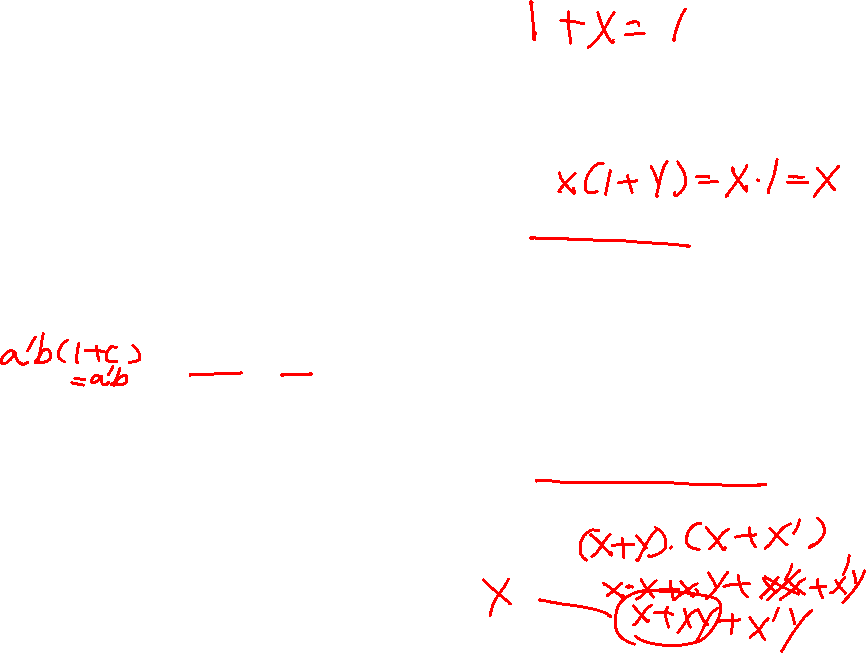 1+x=1
x(1+Y)=X·1=X
a'b(1+c)
=a'b
(x+y).(x+x')
x·x+x·y+xx'+x'y
X
x+xy+x'y